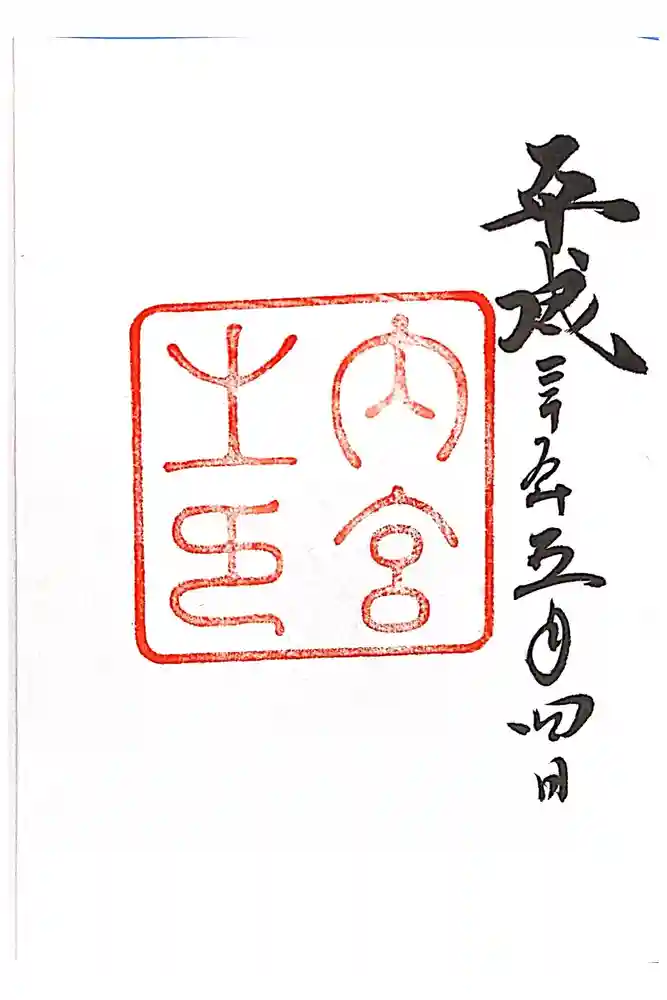 平成三十年五月四日
内宮
之印